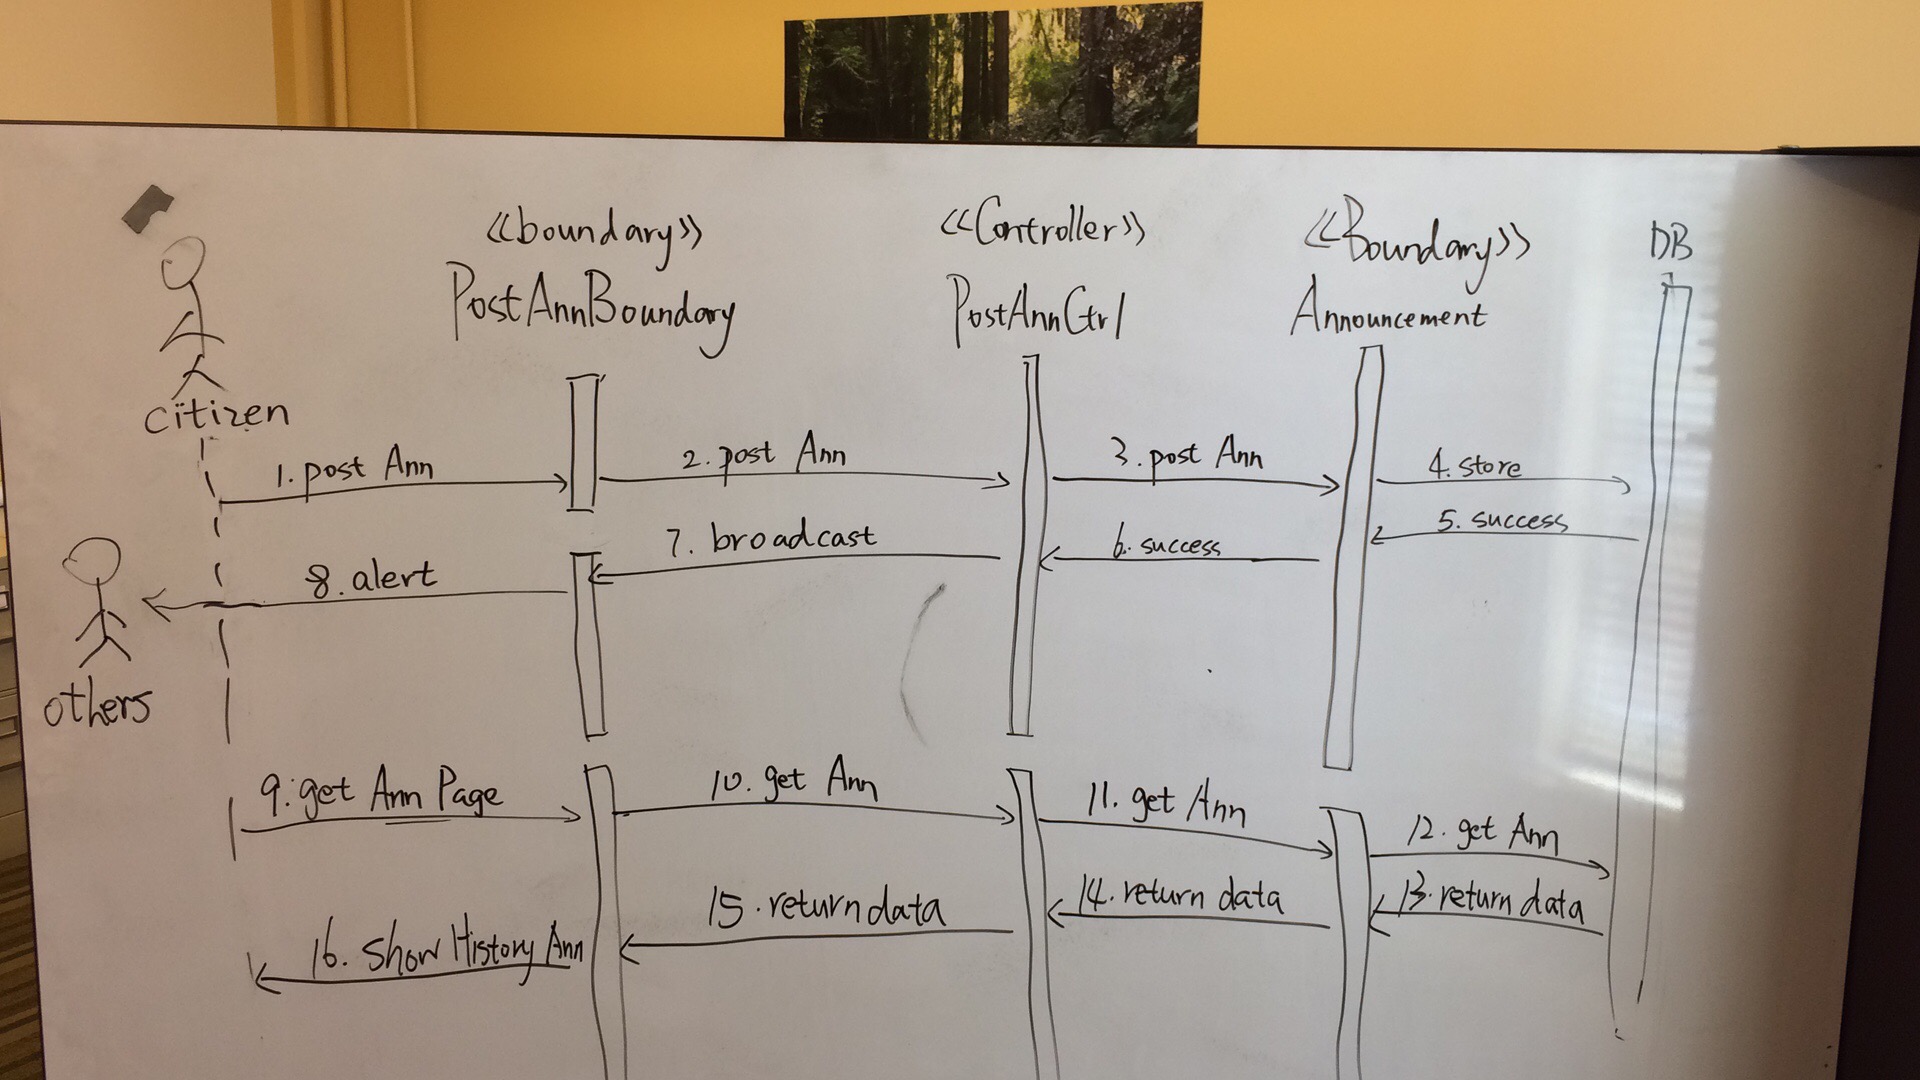 <<boundary>>
PostAnnBoundary
<<Controller>>
PostAnnCtrl
<<Boundary>>
Announcement
DB
citizen
1. post Ann
2. post Ann
3. post Ann
4. store
5. success
6. success
7. broadcast
8. alert
others
9. get Ann Page
10. get Ann
11. get Ann
12. get Ann
13. return data
14. return data
15. return data
16. Show History Ann